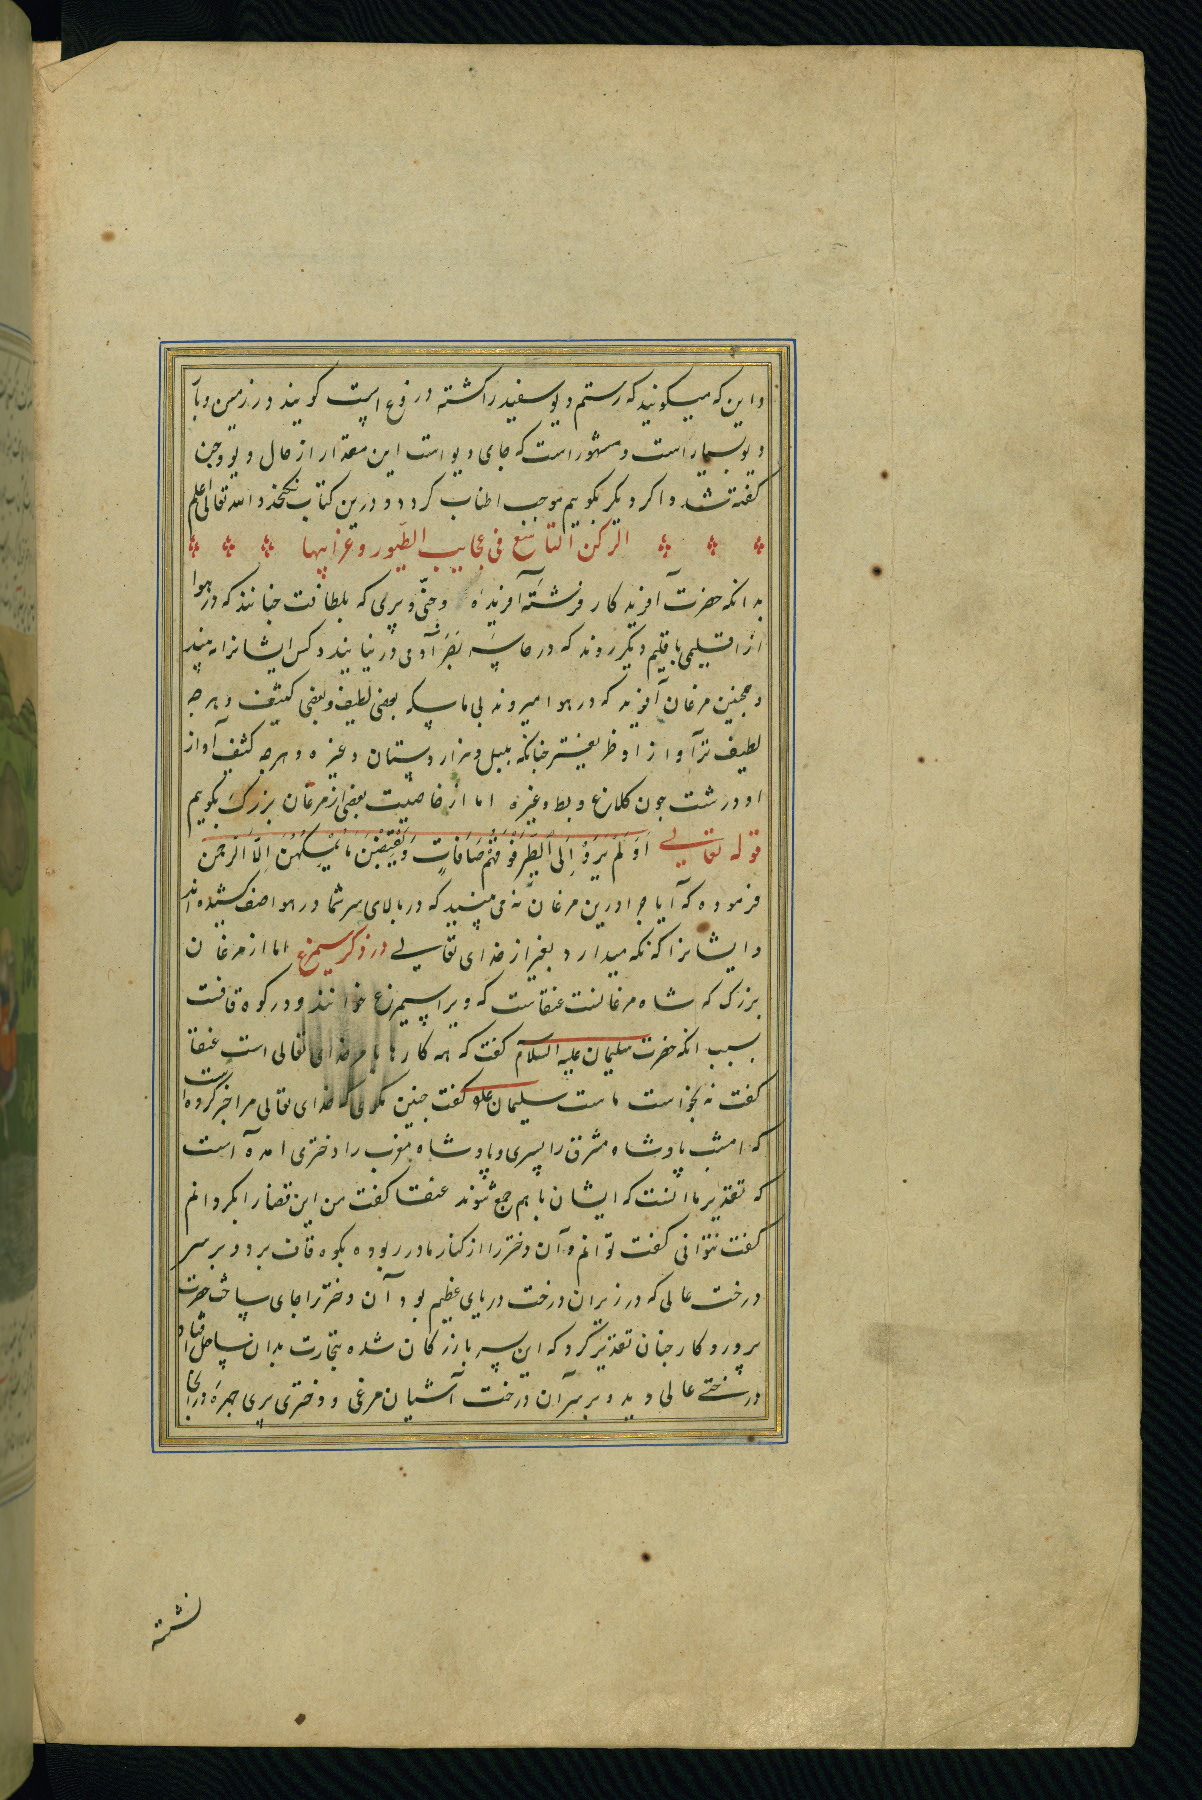 و این که میکویند که رستم دیو سفید را کشته دروغ است کویند در زمین و با
دیو بسیار است و مشهور است که جای دیو است این مقدار از حال دیو و جن
کفته شد و اکر دیکر بکوییم موجب اطناب کردد و درین کتاب نکنجد و الله تعالی اعلم
الرکن التاسع فی عجایب الطیور و غرایبها
بدانکه حضرت آفریدکار فرشته آفریده و جنّ و پری که بلطافت چنانند که در هوا
از اقلیمی باقلیم دیکر روند که در حاسه بصر آدمی در نیایند و کس ایشانرا نه بیند
و همچنین مرغان آفرید که در هوا میروند بی ماسکه بعضی لطیف و بعضی کثیف و هر چه
لطیف تر آواز او ظریفتر چنانکه بلبل و هزار دستان و غیره و هر چه کثیف آواز
او درشت چون کلاغ و بط و غیره اما از خاصیت بعضی از مرغان بزرک بکوییم
قوله تعالی اَوَلَمْ یَرَوْ اِلَی الطَّیْرِ فَوْقَهُمْ صَافَّاتٍ وَیَقْبِضْنَ مَا یُمْسِکُهُنَّ اِلَّا الرَّحْمن
فرموده که آیا چرا درین مرغان نه می بینید که در بالای سر شما در هوا صف کشیده اند
و ایشانرا که نکه میدارد بغیر از خدای تعالی در ذکر سیمرغ اما از مرغان
بزرک که شاه مرغانست عنقاست که ویرا سیمرغ خوانند و در کوه قافست
بسبب انکه حضرت سلیمان علیه السلام کفت که همه کارها بامر خدای تعالی است عنقا
کفت نه بخواست ماست سلیمان علم کفت چنین مکوی که خدای تعالی مرا خبر کرده است
که امشب پادشاه مشرق را پسری و پادشاه مغرب را دختری امده است
که تقدیر ما انست که ایشان با هم جمع شوند عنقا کفت من این قضا را بکردانم
کفت نتوانی کفت توانم و آن دختر را از کنار مادر ربوده بکوه قاف برد و بر سر
درخت عالی که در زیر ان درخت دریای عظیم بود آن دختر را جای ساخت حضرت
پروردکار چنان تقدیر کرد که این پسر بازرکان شده بتجارت بدان ساحل افتاد
درختی عالی دید و بر سر آن درخت آشیان مرغی و دختری پری چهره در انجا
نشسته